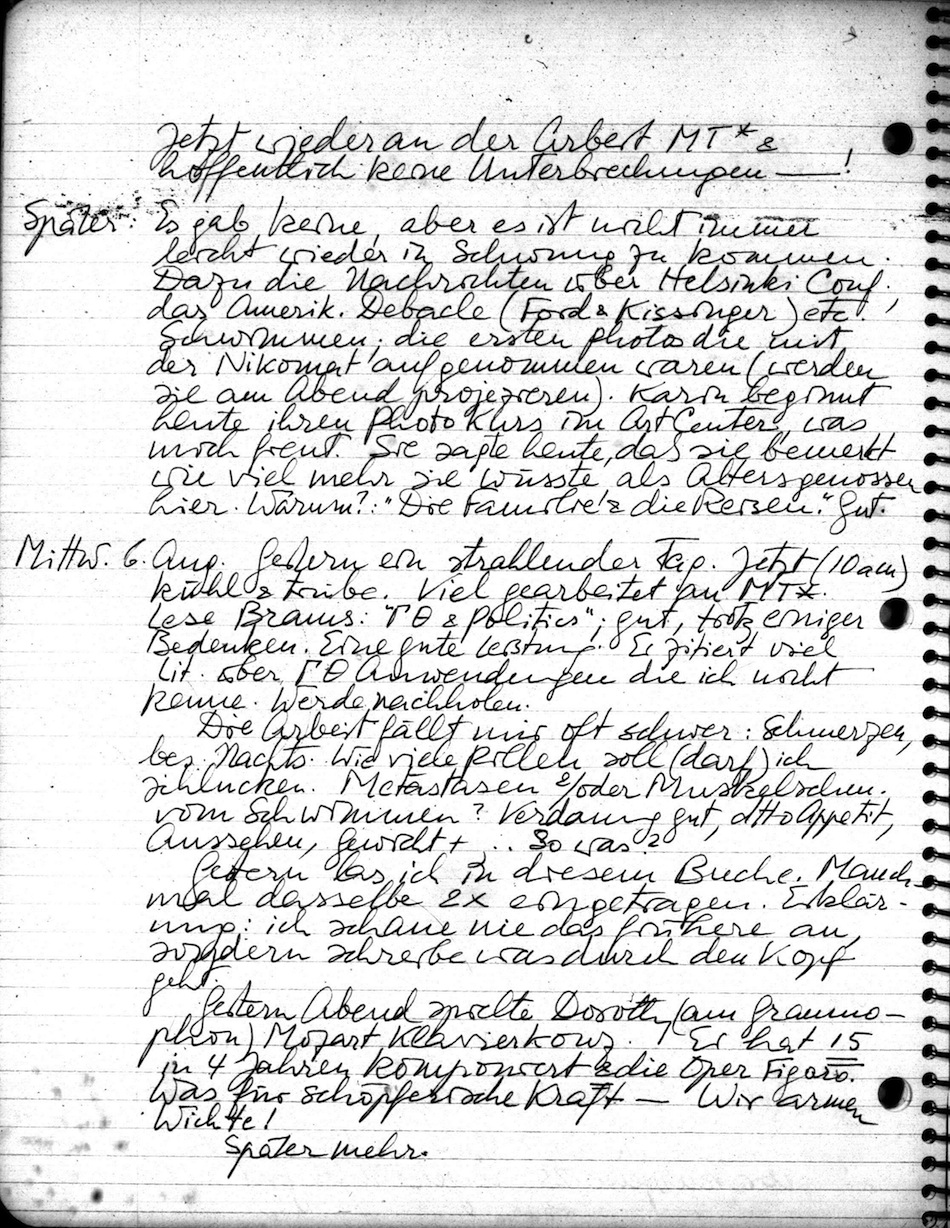 Jetzt wieder an der Arbeit MT* &
hoffentlich keine Unterbrechungen — !
Später: Es gab keine, aber es ist nicht immer
leicht wieder in Schwung zu kommen.
Dazu die Nachrichten über Helsinki Conf.,
das Amerik. Debacle (Ford & Kissinger) etc.
Schwimmen; die ersten photos die mit
der Nikomat aufgenommen waren (werden
sie am Abend projezieren). Karin beginnt
heute ihren Photo Kurs im Art Center, was
mich freut. Sie sagte heute, daß sie bemerkt
wie viel mehr sie wüsste als Altersgenossen
hier. Warum?: "Die Familie & die Reisen." Gut.
Mittw. 6. Aug. Gestern ein strahlender Tag. Jetzt (10 am)
kühl & trübe. Viel gearbeitet an MT*.
Lese Brams: "ΓΘ & Politics"; gut, trotz einiger
Bedenken. Eine gute Leistung. Er zitiert viel
Lit. über ΓΘ Anwendungen die ich nicht
kenne. Werde nachholen.
Die Arbeit fällt mir oft schwer: Schmerzen,
bes. Nachts. Wie viele Pillen soll (darf) ich
schlucken. Metastasen &/oder Muskelschm.
vom Schwimmen? Verdauung gut, dtto Appetit,
Aussehen, Gewicht + ... So was?
Gestern las ich in diesem Buche. Manch-
mal dasselbe 2x eingetragen. Erklär-
ung: ich schaue nie das frühere an,
sondern schreibe was durch den Kopf
geht.
Gestern Abend spielte Dorothy (am Grammo-
phon) Mozart Klavierkonz. Er hat 15
in 4 Jahren komponiert & die Oper Figaro.
Was für schöpferische Kraft — Wir armen
Wichte!
Später mehr.